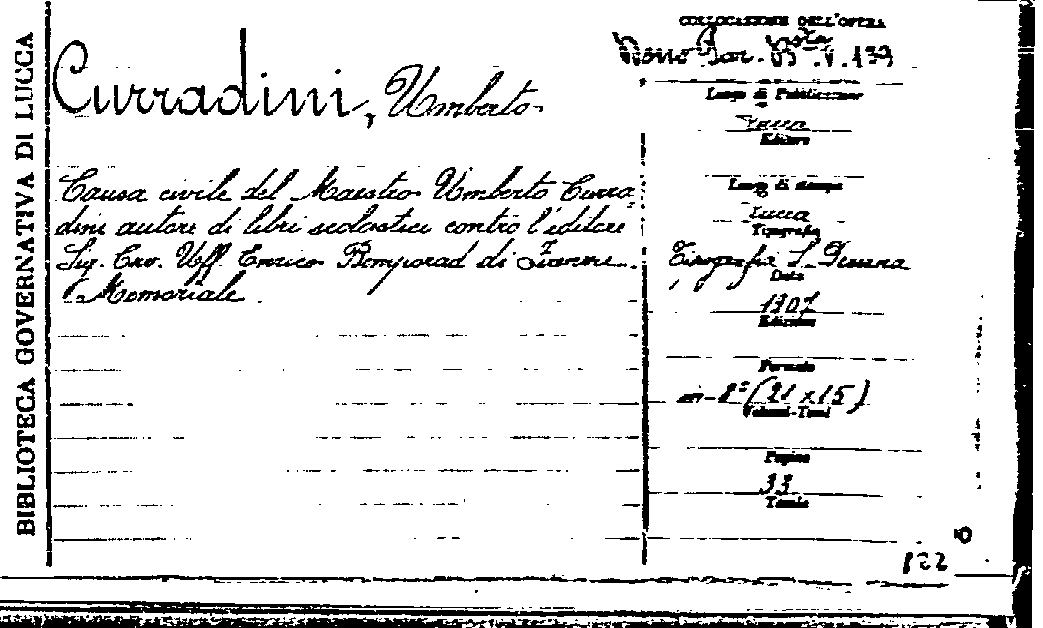 BIBLIOTECA GOVERNATIVA DI LUCCA
Curradini, Umberto
Causa civile del Maestro Umberto Curra-
dini autore di libri scolastici contro l'editore
Sig. Cav. Uff. Enrico Bemporad di Firenze.
Memoriale.
COLLOCAZIONE DELL'OPERA
V. 139
Luogo di Pubblicazione
Lucca
Editore
Luogo di stampa
Lucca
Tipografia
Tipografia
Data
1907
Edizione
Formato
in-8° (21 x 15)
Volumi-Tomi
Pagine
33
Tavole
122